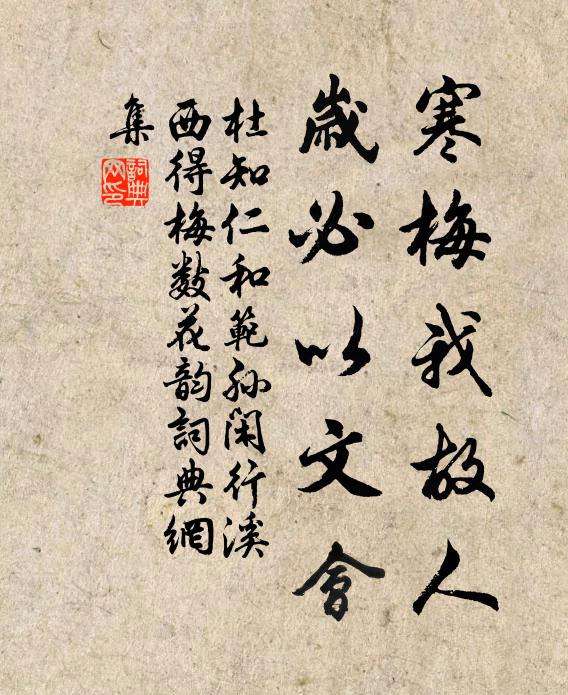 寒梅我故人
歲必以文會
杜知仁和範孫閑行溪
西得梅數花韵詞典網
集
詞典
網印